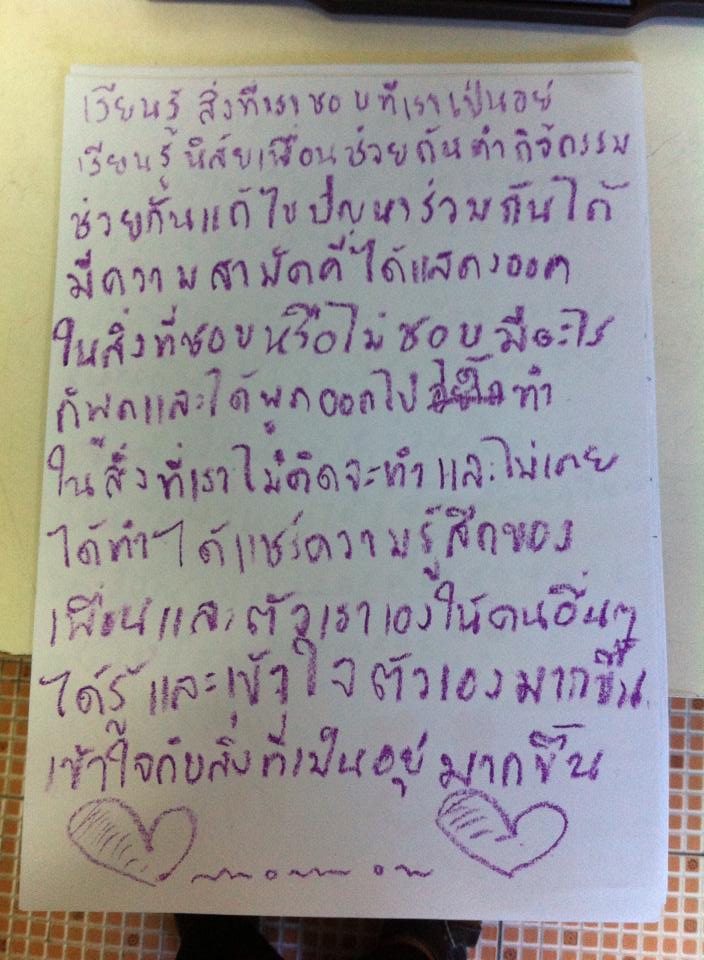 เรียนรู้ สิ่งที่เราชอบที่เราเป็นอยู่
เรียนรู้นิสัยเพื่อนช่วยกันทำกิจกรรม
ช่วยกันแก้ไขปัญหาร่วมกันได้
มีความสามัคคีได้แสดงออก
ในสิ่งที่ชอบหรือไม่ชอบ มีอะไร
ก็พูดและได้พูดออกไป ทำ
ในสิ่งที่เราไม่คิดจะทำและไม่เคย
ได้ทำ ได้แชร์ความรู้สึกของ
เพื่อนและตัวเราเองให้คนอื่นๆ
ได้รู้ และเข้าใจตัวเองมากขึ้น
เข้าใจกับสิ่งที่เป็นอยู่ มากขึ้น